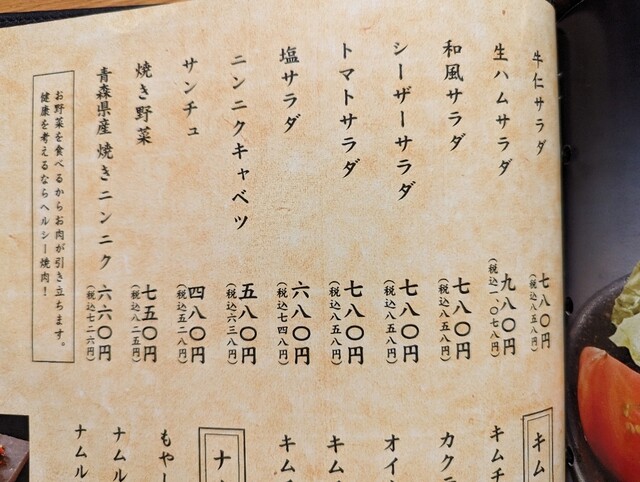 牛仁サラダ
七八〇円
(税込八五八円)
生ハムサラダ
九八〇円
(税込一、〇七八円)
和風サラダ
七八〇円
(税込八五八円)
シーザーサラダ
七八〇円
(税込八五八円)
トマトサラダ
七八〇円
(税込八五八円)
塩サラダ
六八〇円
(税込七四八円)
ニンニクキャベツ
五八〇円
(税込六三八円)
サンチュ
四八〇円
(税込五二八円)
焼き野菜
七五〇円
(税込八二五円)
青森県産 焼きニンニク
六六〇円
(税込七二六円)
お野菜を食べるからお肉が引き立ちます。
健康を考えるならヘルシー焼肉!
キム
キムチ
カク
オイ
キム
キムチ
ナ
もやし
ナムル
ナムル